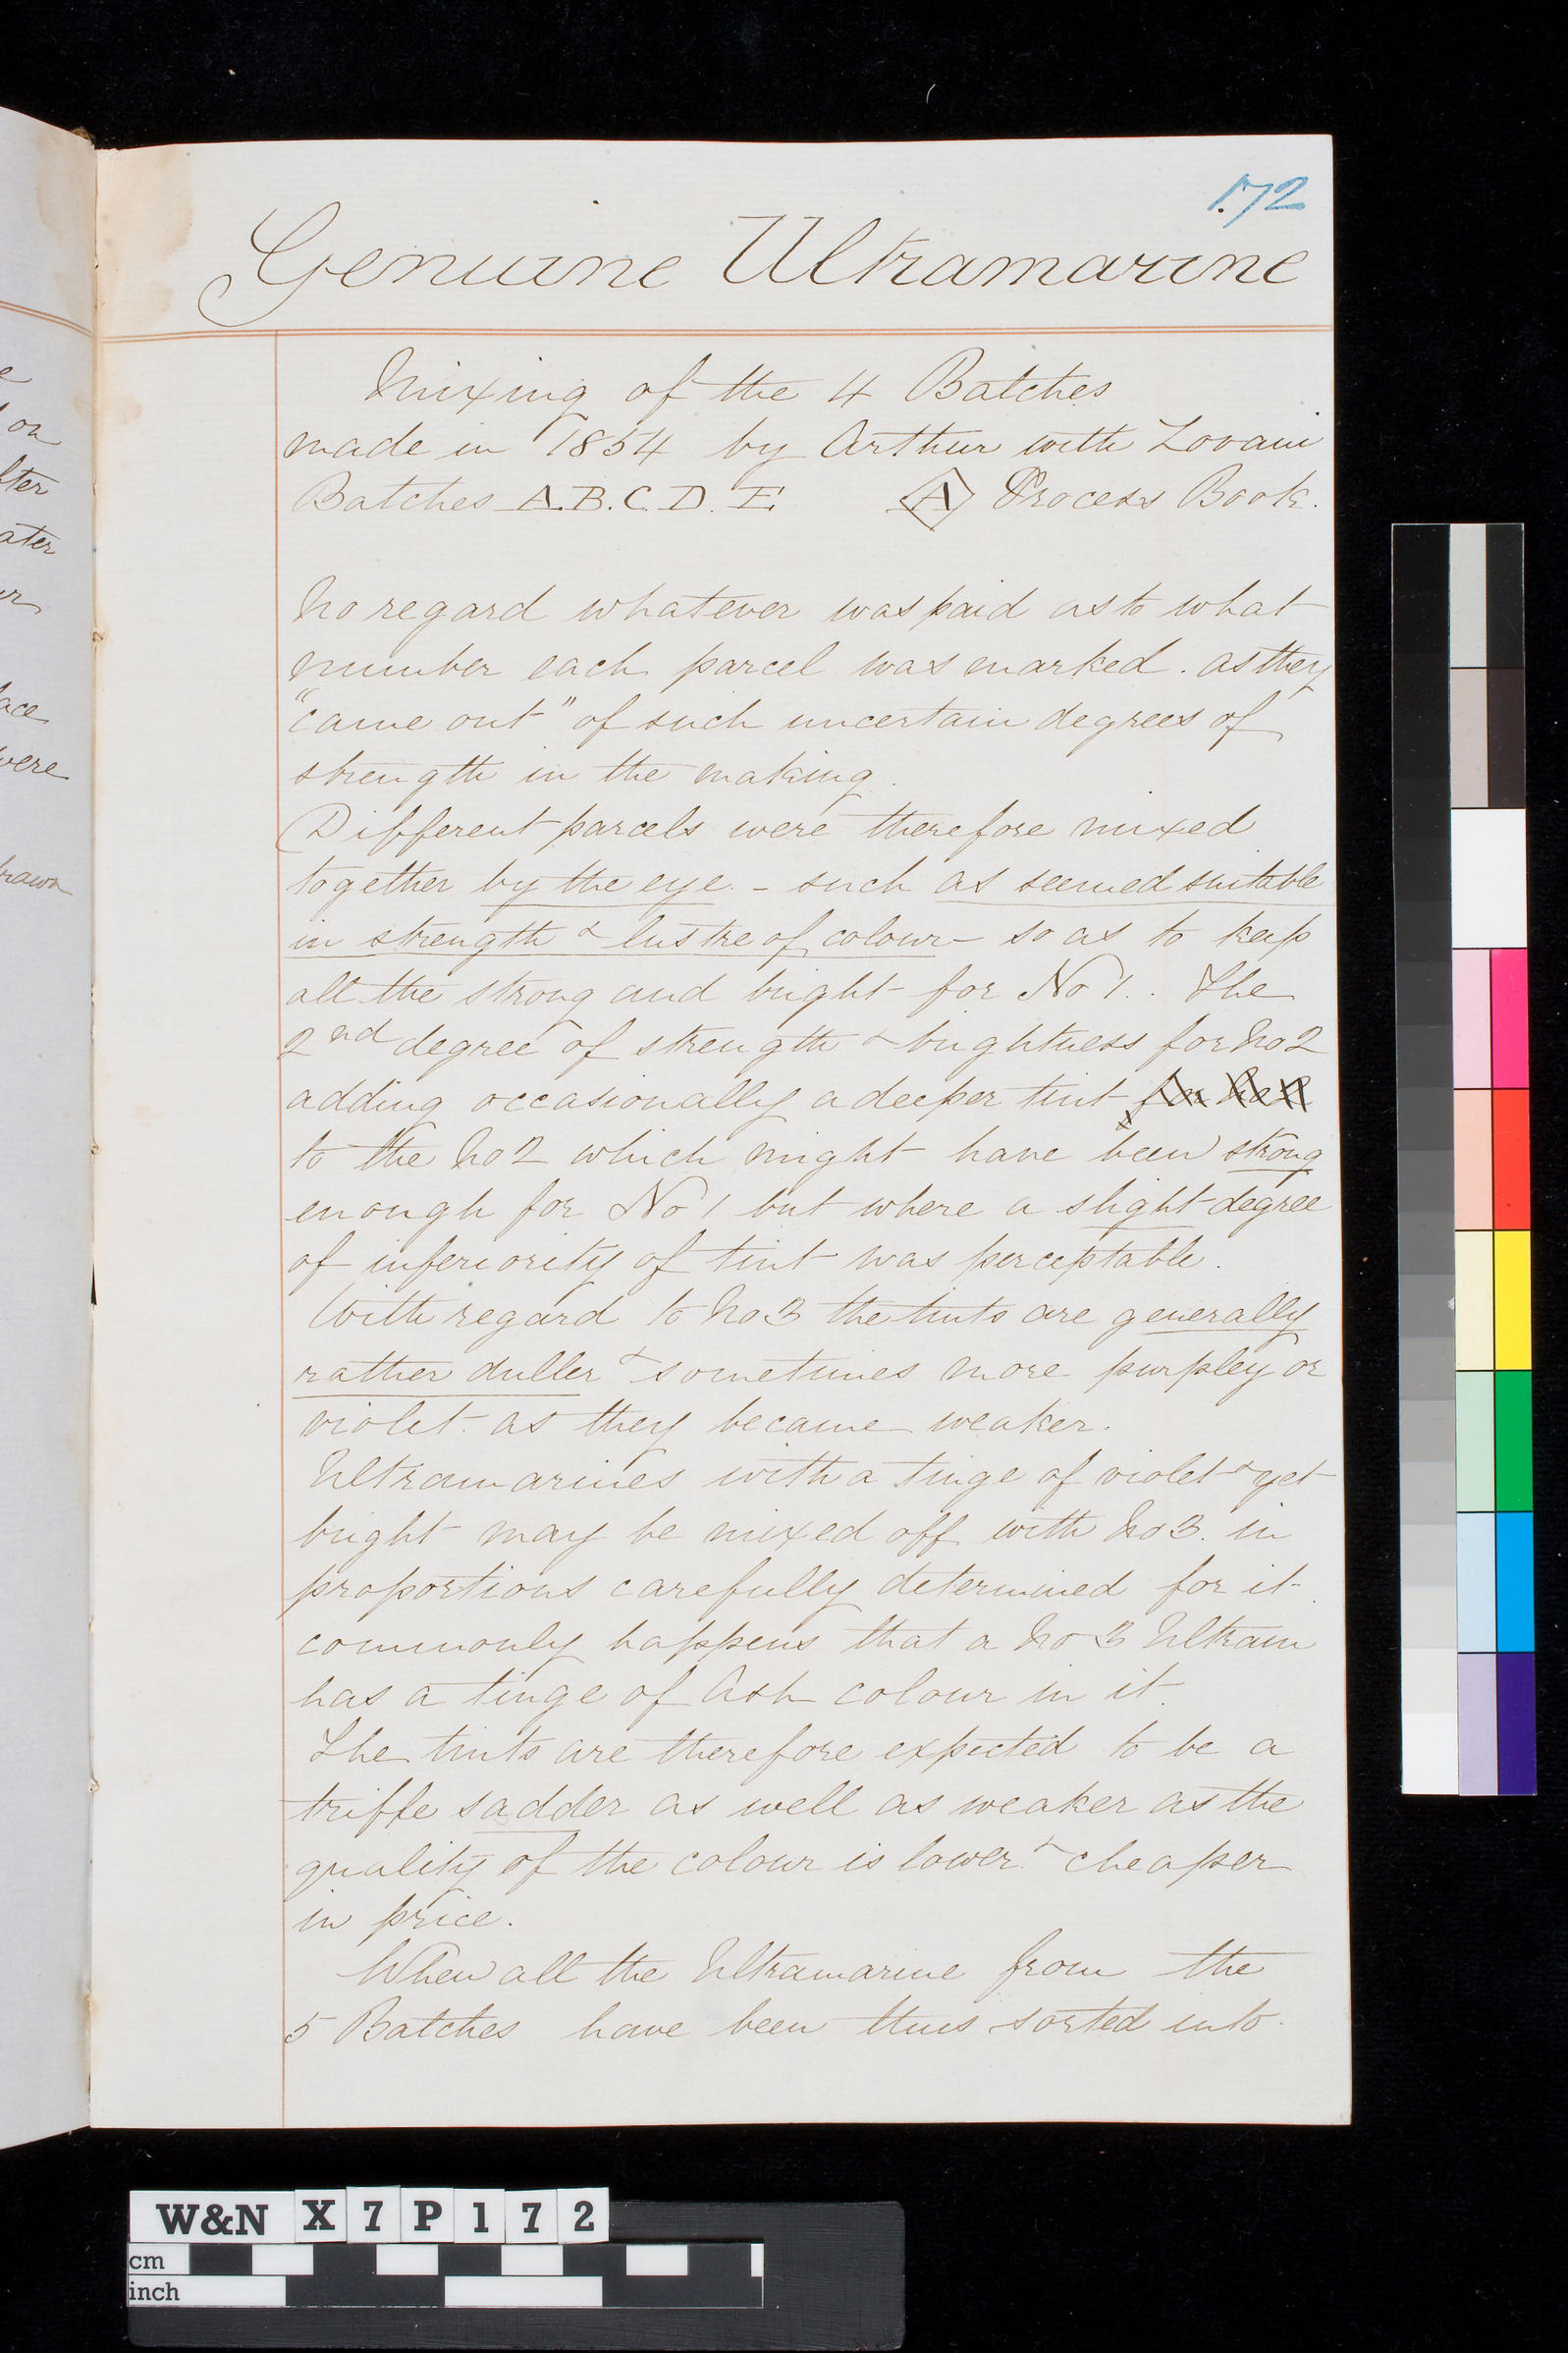 172
Genuine Ultramarine
Mixing of the 4 Batches
made in 1854 by Arthur with Lovani
Batches A.B.C.D.E. A Process Book.
No regard whatever was paid as to what
number each parcel was marked. as they
"came out" of such uncertain degrees of
strength in the making.
Different parcels were therefore mixed
together by the eye - such as seemed suitable
in strength & lustre of colour - so as to keep
all the strong and bright for No 1. The
2nd degree of strength & brightness for No 2
adding occasionally a deeper tint
to the No 2 which might have been strong
enough for No 1 but where a slight degree
of inferiority of tint was perceptable.
With regard to No 3 the tints are generally
rather duller & sometimes more purpley or
violet. as they became weaker.
Ultramarines with a tinge of violet & yet
bright may be mixed off with No 3. in
proportions carefully determined for it
commonly happens that a No 3 Ultram
has a tinge of Ash colour in it.
The tints are therefore expected to be a
triffle sadder as well as weaker as the
quality of the colour is lower & cheaper
in price.
When all the Ultramarine from the
5 Batches have been thus sorted into
e
on
fter
ater
er
ace
were
rawn
W&N X7P172
cm
inch